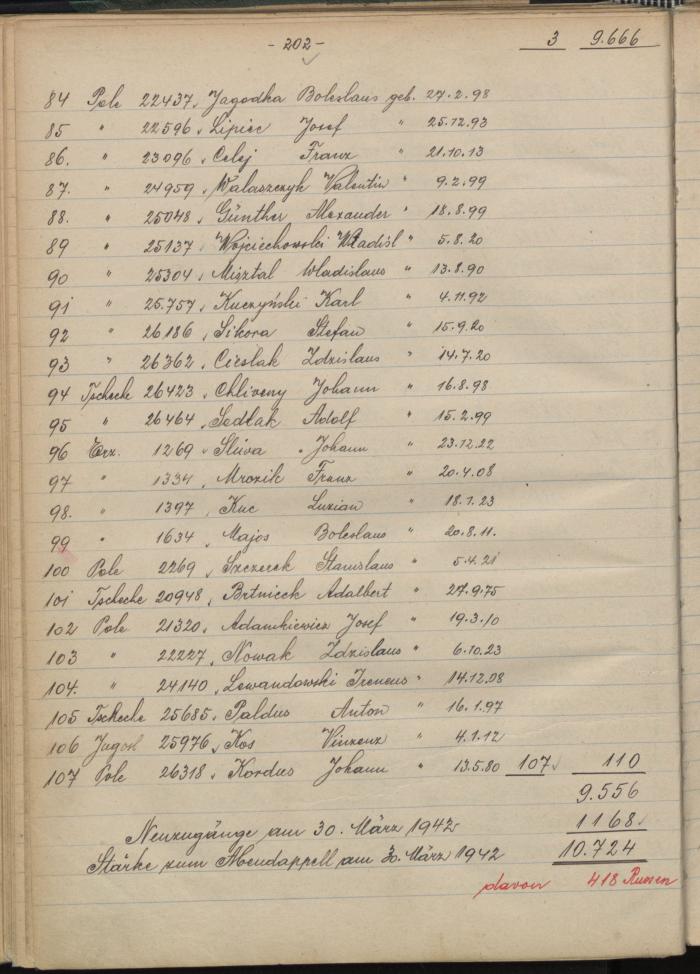 - 202 - 3 9.666
84 Pole 22437, Jagodka Boleslaus geb. 27.2.98
85 " 22596, Lipiec Josef " 25.12.93
86. " 23096, Celej Franz " 21.10.13
87. " 24959, Walaszczyk Valentin " 9.2.99
88. " 25048, Günther Alexander " 18.8.99
89 " 25137, Wojciechowski Wladisl " 5.8.20
90 " 25304, Misztal Wladislaus " 13.8.90
91 " 25.757, Kuczyński Karl " 4.11.92
92 " 26186, Sikora Stefan " 15.9.20
93 " 26362, Cieslak Zdzislaus " 14.7.20
94 Tscheche 26423, Chliveny Johann " 16.8.98
95 " 26464, Sedlak Adolf " 15.2.99
96 Erz. 1269, Sliva Johann " 23.12.22
97 " 1334, Mrozik Franz " 20.4.08
98. " 1397, Kuc Luzian " 18.1.23
99 " 1634, Majos Boleslaus " 20.8.11.
100 Pole 2269, Szczerek Stanislaus " 5.4.21
101 Tscheche 20948, Brtnicek Adalbert " 27.9.75
102 Pole 21320, Adamkiewicz Josef " 19.3.10
103 " 22227, Nowak Zdzislaus " 6.10.23
104. " 24140, Lewandowski Ireneus " 14.12.08
105 Tscheche 25685, Paldus Anton " 16.1.97
106 Jugosl 25976, Kos Vinzenz " 4.1.12
107 Pole 26318, Kordus Johann " 13.5.80 107 110
9.556
Neuzugänge am 30. März 1942 1168
Stärke zum Abendappell am 30. März 1942 10.724
davon 418 Russen